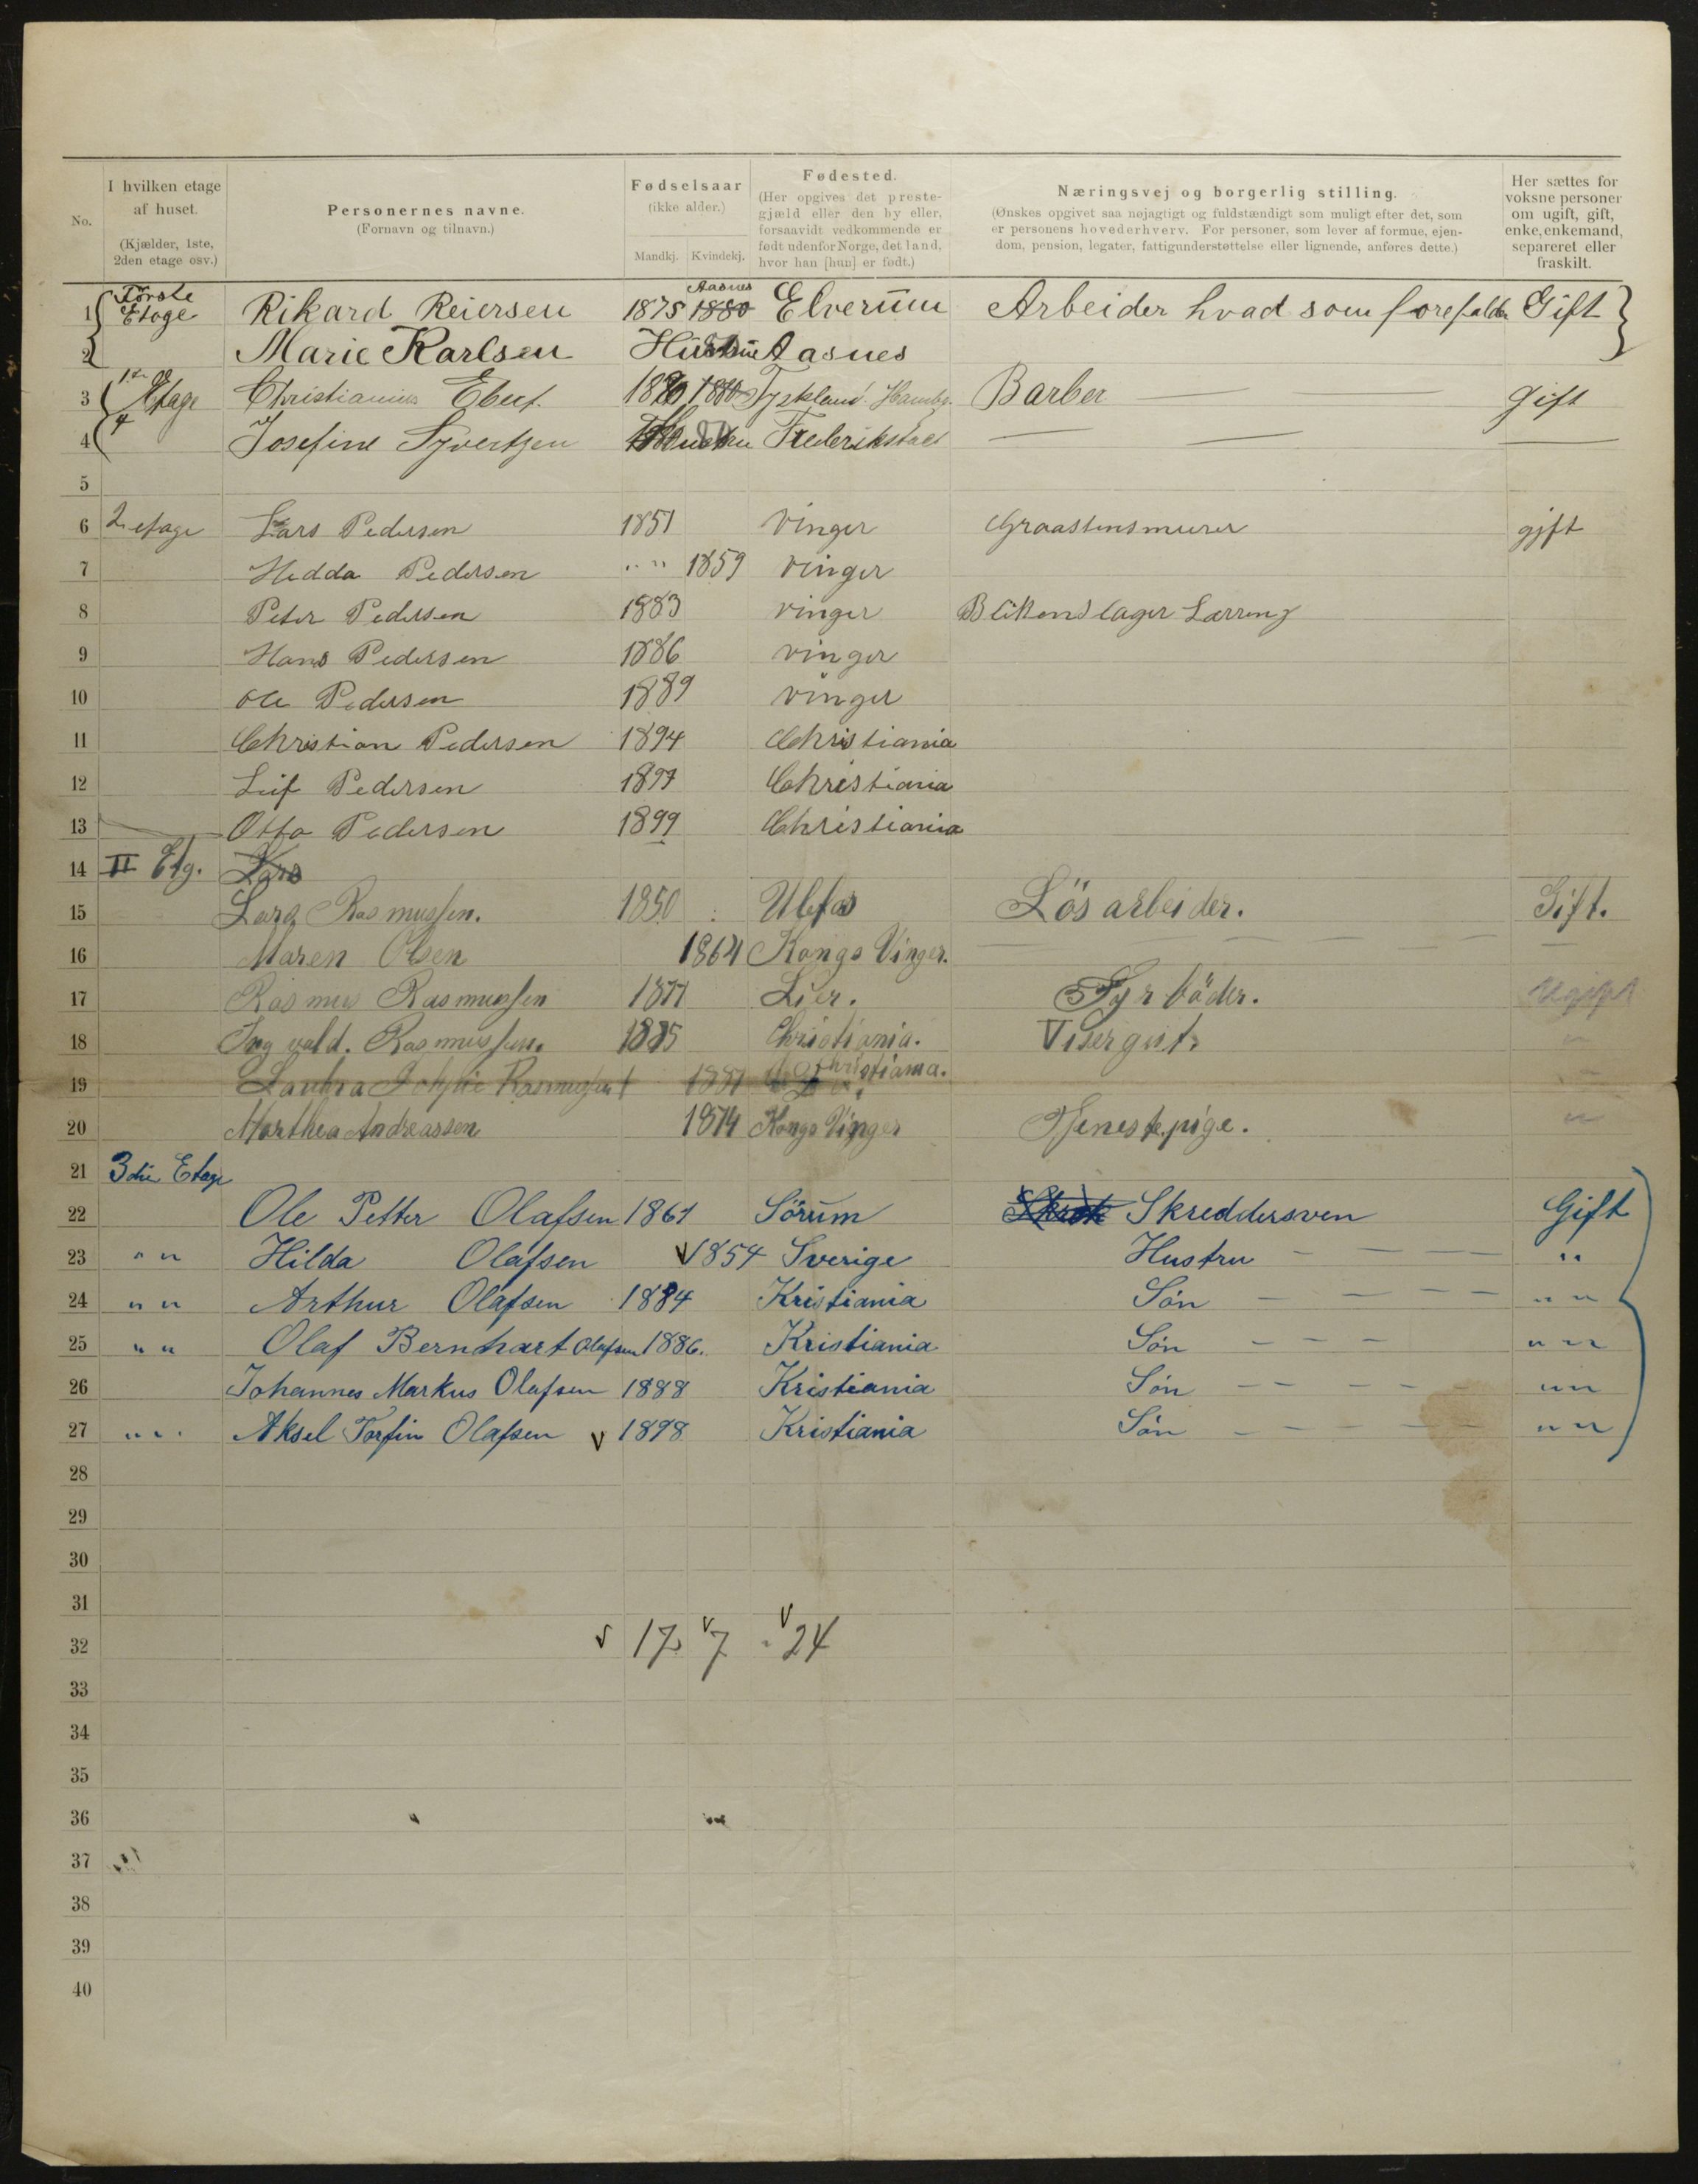 No.
I hvilken etage af huset. (Kjælder, 1ste, 2den etage osv.)
Personernes navne. (Fornavn og tilnavn.)
Fødselsaar (ikke alder.) Mandkj. Kvindekj.
Fødested. (Her opgives det prestegjæld eller den by eller, forsaavidt vedkommende er født udenfor Norge, det land, hvor han [hun] er født.)
Næringsvej og borgerlig stilling. (Ønskes opgivet saa nøjagtigt og fuldstændigt som muligt efter det, som er personens hovederhverv. For personer, som lever af formue, ejendom, pension, legater, fattigunderstøttelse eller lignende, anføres dette.)
Her sættes for voksne personer om ugift, gift, enke, enkemand, separeret eller fraskilt.
1 Förste Etage Rikard Reiersen 1875 1880 Aasnes Elverum Arbeider hvad som forefalder Gift
2 Marie Karlsen Hustru Aasnes
3 1ste Etage Christianius Ebert. 1870 1880 Tyskland Hambg. Barber — — gift
4 Josefine Syvertsen Hustru Frederikstad — — —
5
6 2 etage Lars Pedersen 1851 Vinger Graastensmurer gift
7 Hedda Pedersen " " 1859 vinger
8 Peter Pedersen 1883 vinger Blikenslager Lærreng
9 Hans Pedersen 1886 vinger
10 ole Pedersen 1889 vinger
11 Christian Pedersen 1894 Christiania
12 Leif Pedersen 1897 Christiania
13 Otto Pedersen 1899 Christiania
14 II Etg. Lars
15 Lars Rasmussen. 1850 Ulefos Lösarbeider. Gift.
16 Maren Olsen 1864 Kongs Vinger. — — — — —
17 Rasmus Rasmussen 1877 Lier. Fyrböder. Ugift
18 Ingvald. Rasmussen. 1885 Christiania. Visergut. "
19 Laura Rasmussen 1887 Christiania.
20 Marthea Andreassen 1874 Kongs Vinger Tjenestepige. "
21 3die Etage
22 Ole Petter Olafsen 1861 Sörum Skredddersven Gift
23 " " Hilda Olafsen 1854 Sverige Hustru - - - - " "
24 " " Arthur Olafsen 1884 Kristiania Sön - - - - " "
25 " " Olaf Bernhart Olafsen 1886. Kristiania Sön - - - " "
26 Johannes Markus Olafsen 1888 Kristiania Sön - - - - " "
27 " " Aksel Torfin Olafsen 1898 Kristiania Sön - - - - " "
28
29
30
31
32 17 7 24
33
34
35
36
37
38
39
40